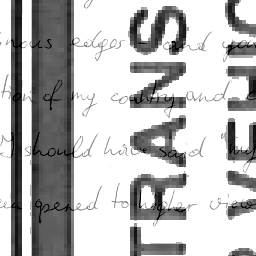 edges - and you
tion of my country and
I should have said "my
opened to higher views
TRANS
VEHC